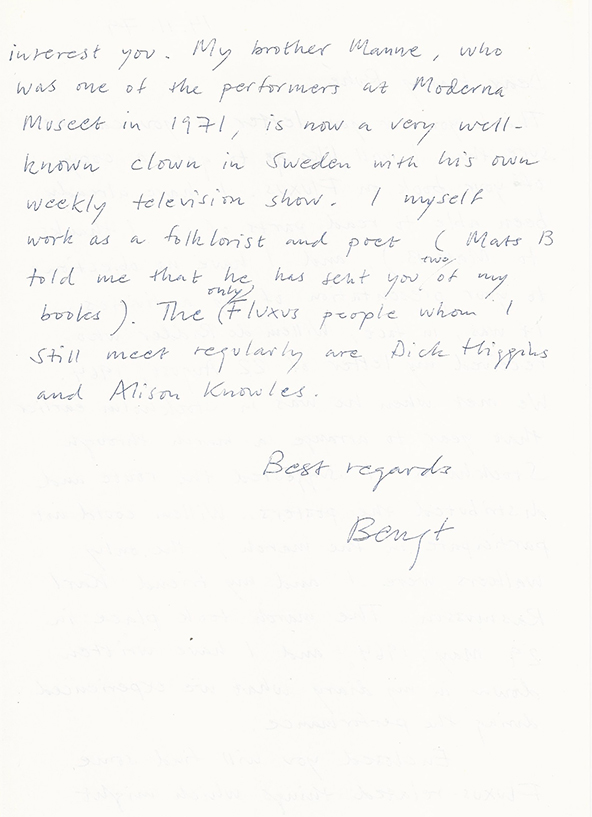 interest you. My brother Manne, who
was one of the performers at Moderna
Museet in 1971, is now a very well-
known clown in Sweden with his own
weekly television show. I myself
work as a folklorist and poet (Mats B
told me that he has sent you two of my
books). The (only) Fluxus people whom I
still meet regularly are Dick Higgins
and Alison Knowles.
Best regards
Bengt